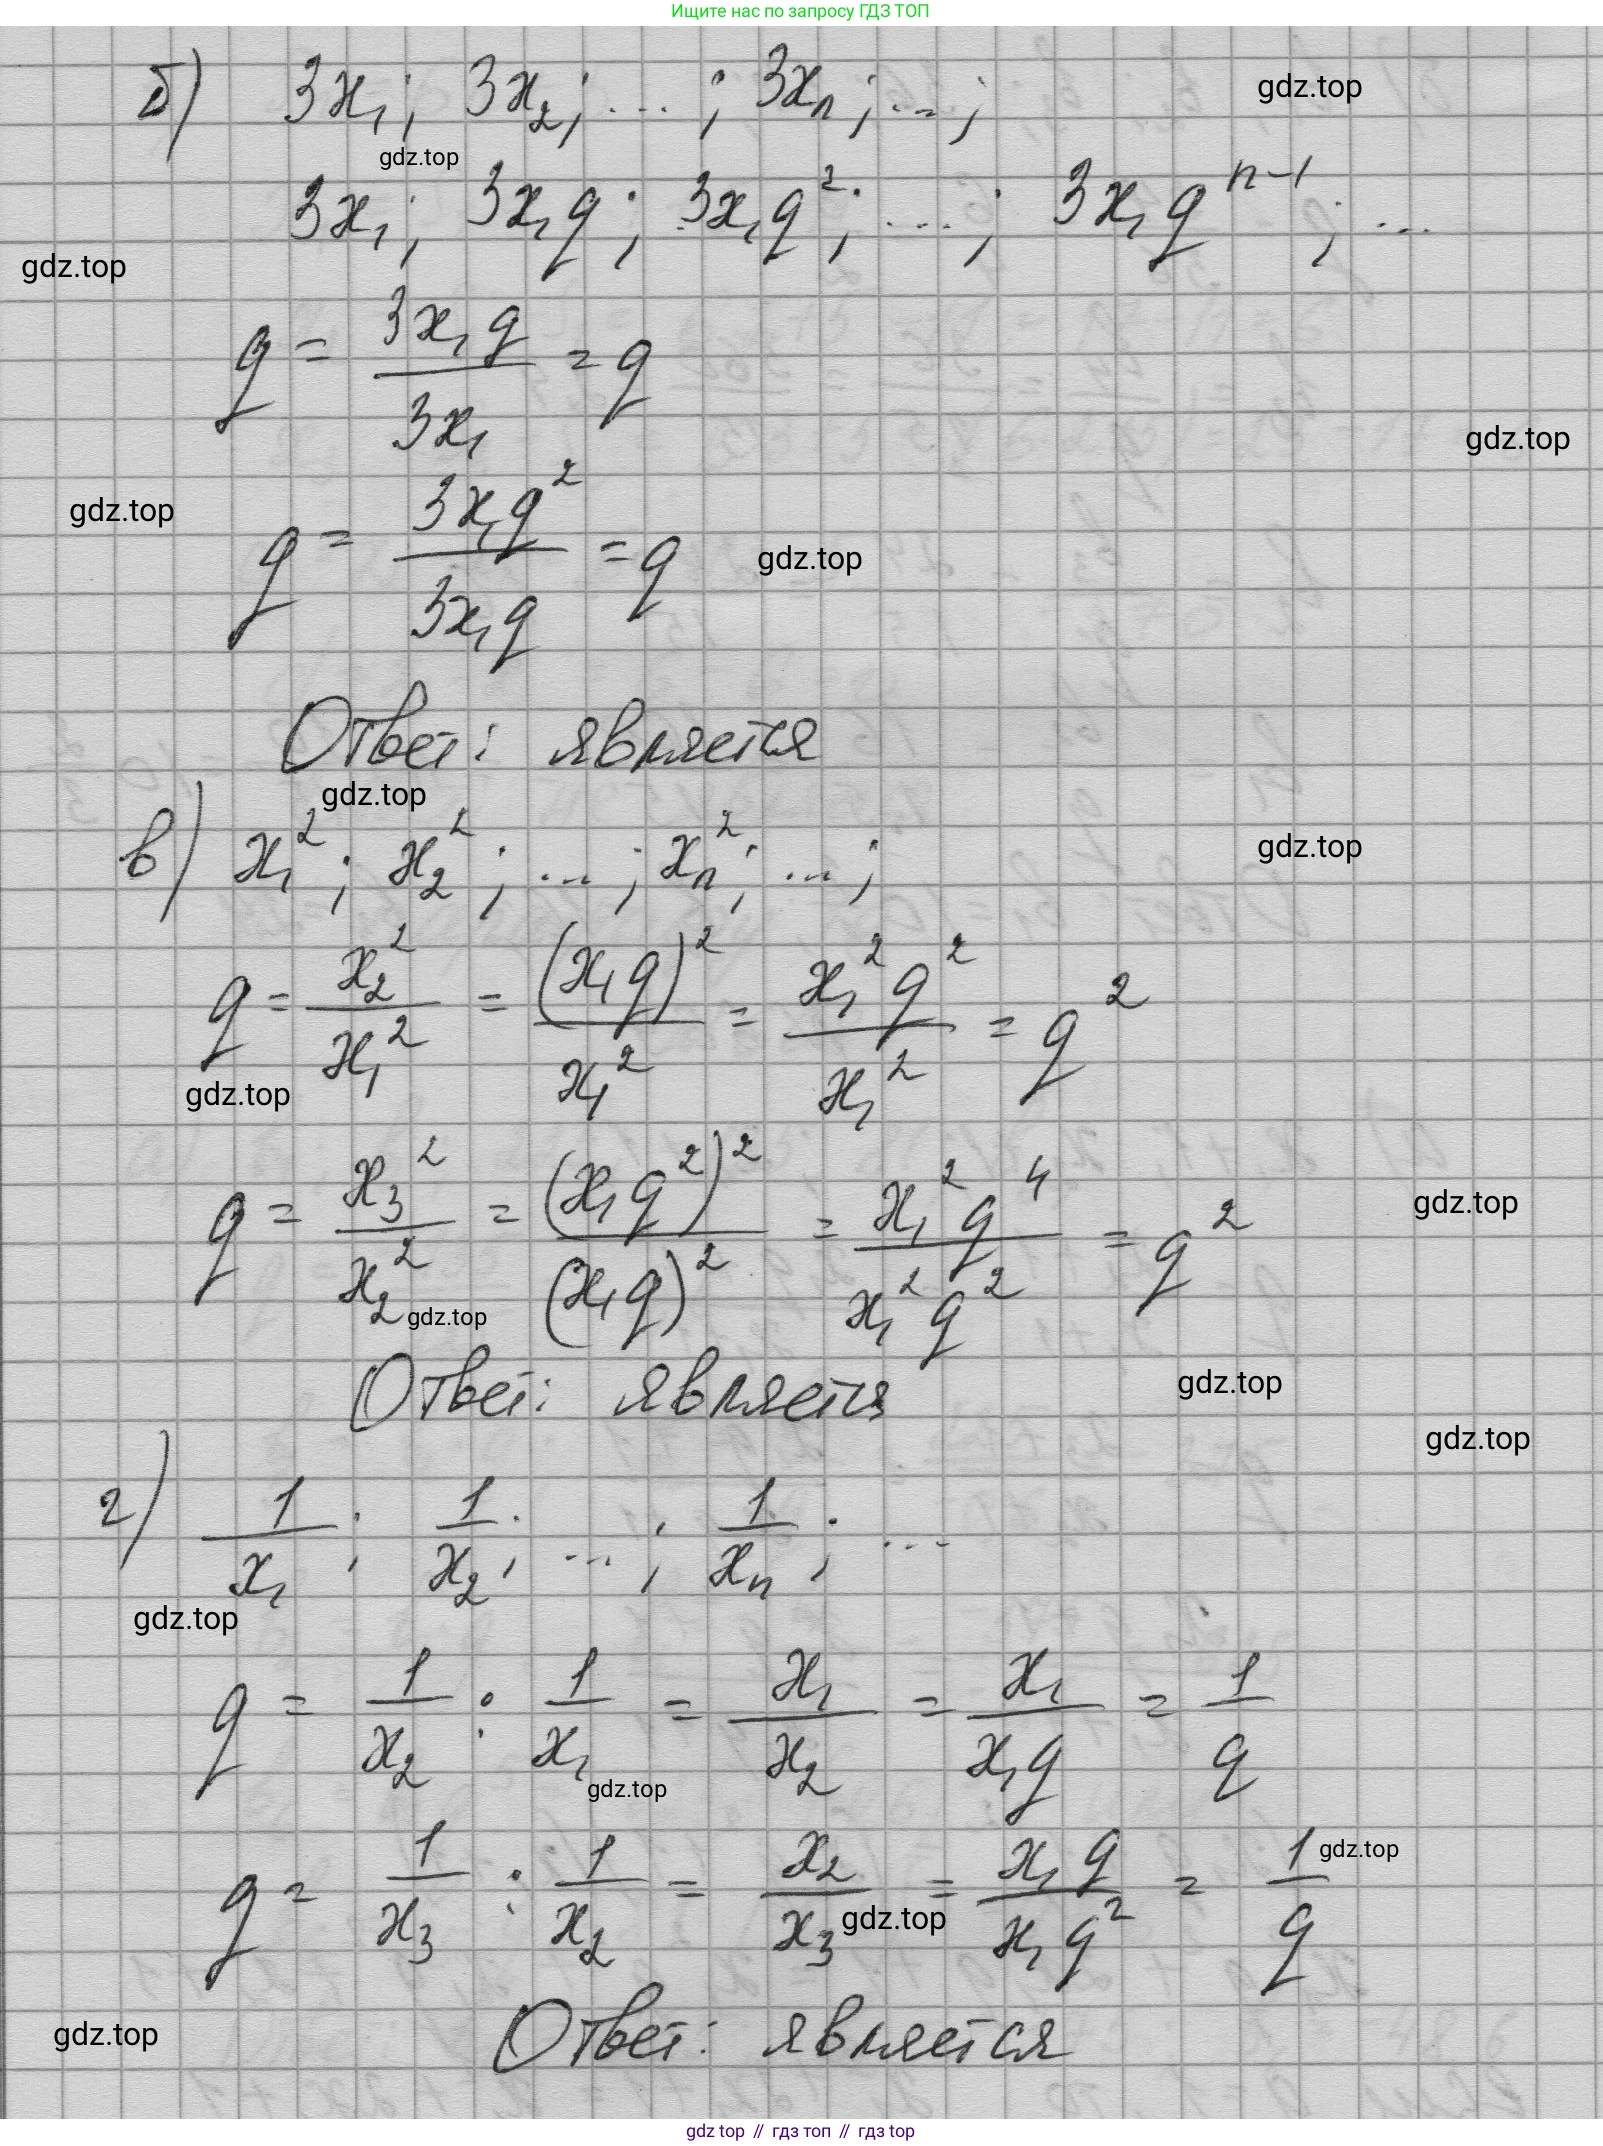 Ищите нас по запросу ГДЗ ТОП
б) 3x₁; 3x₂; ...; 3xₙ; ...;
gdz.top
gdz.top
3x₁; 3x₁q; 3x₁q²; ...; 3x₁qⁿ⁻¹; ...
gdz.top
q = 3x₁q / 3x₁ = q
gdz.top
gdz.top
q = 3x₁q² / 3x₁q = q
gdz.top
Ответ: является
gdz.top
в) x₁²; x₂²; ...; xₙ²; ...;
gdz.top
q = x₂² / x₁² = (x₁q)² / x₁² = x₁²q² / x₁² = q²
gdz.top
q = x₃² / x₂² = (x₁q²)² / (x₁q)² = x₁²q⁴ / x₁²q² = q²
gdz.top
gdz.top
Ответ: является
gdz.top
gdz.top
г) 1/x₁; 1/x₂; ...; 1/xₙ; ...
gdz.top
q = 1/x₂ : 1/x₁ = x₁/x₂ = x₁/x₁q = 1/q
gdz.top
q = 1/x₃ : 1/x₂ = x₂/x₃ = x₁q/x₁q² = 1/q
gdz.top
gdz.top
Ответ: является
gdz.top
gdz.top // гдз топ // гдз top